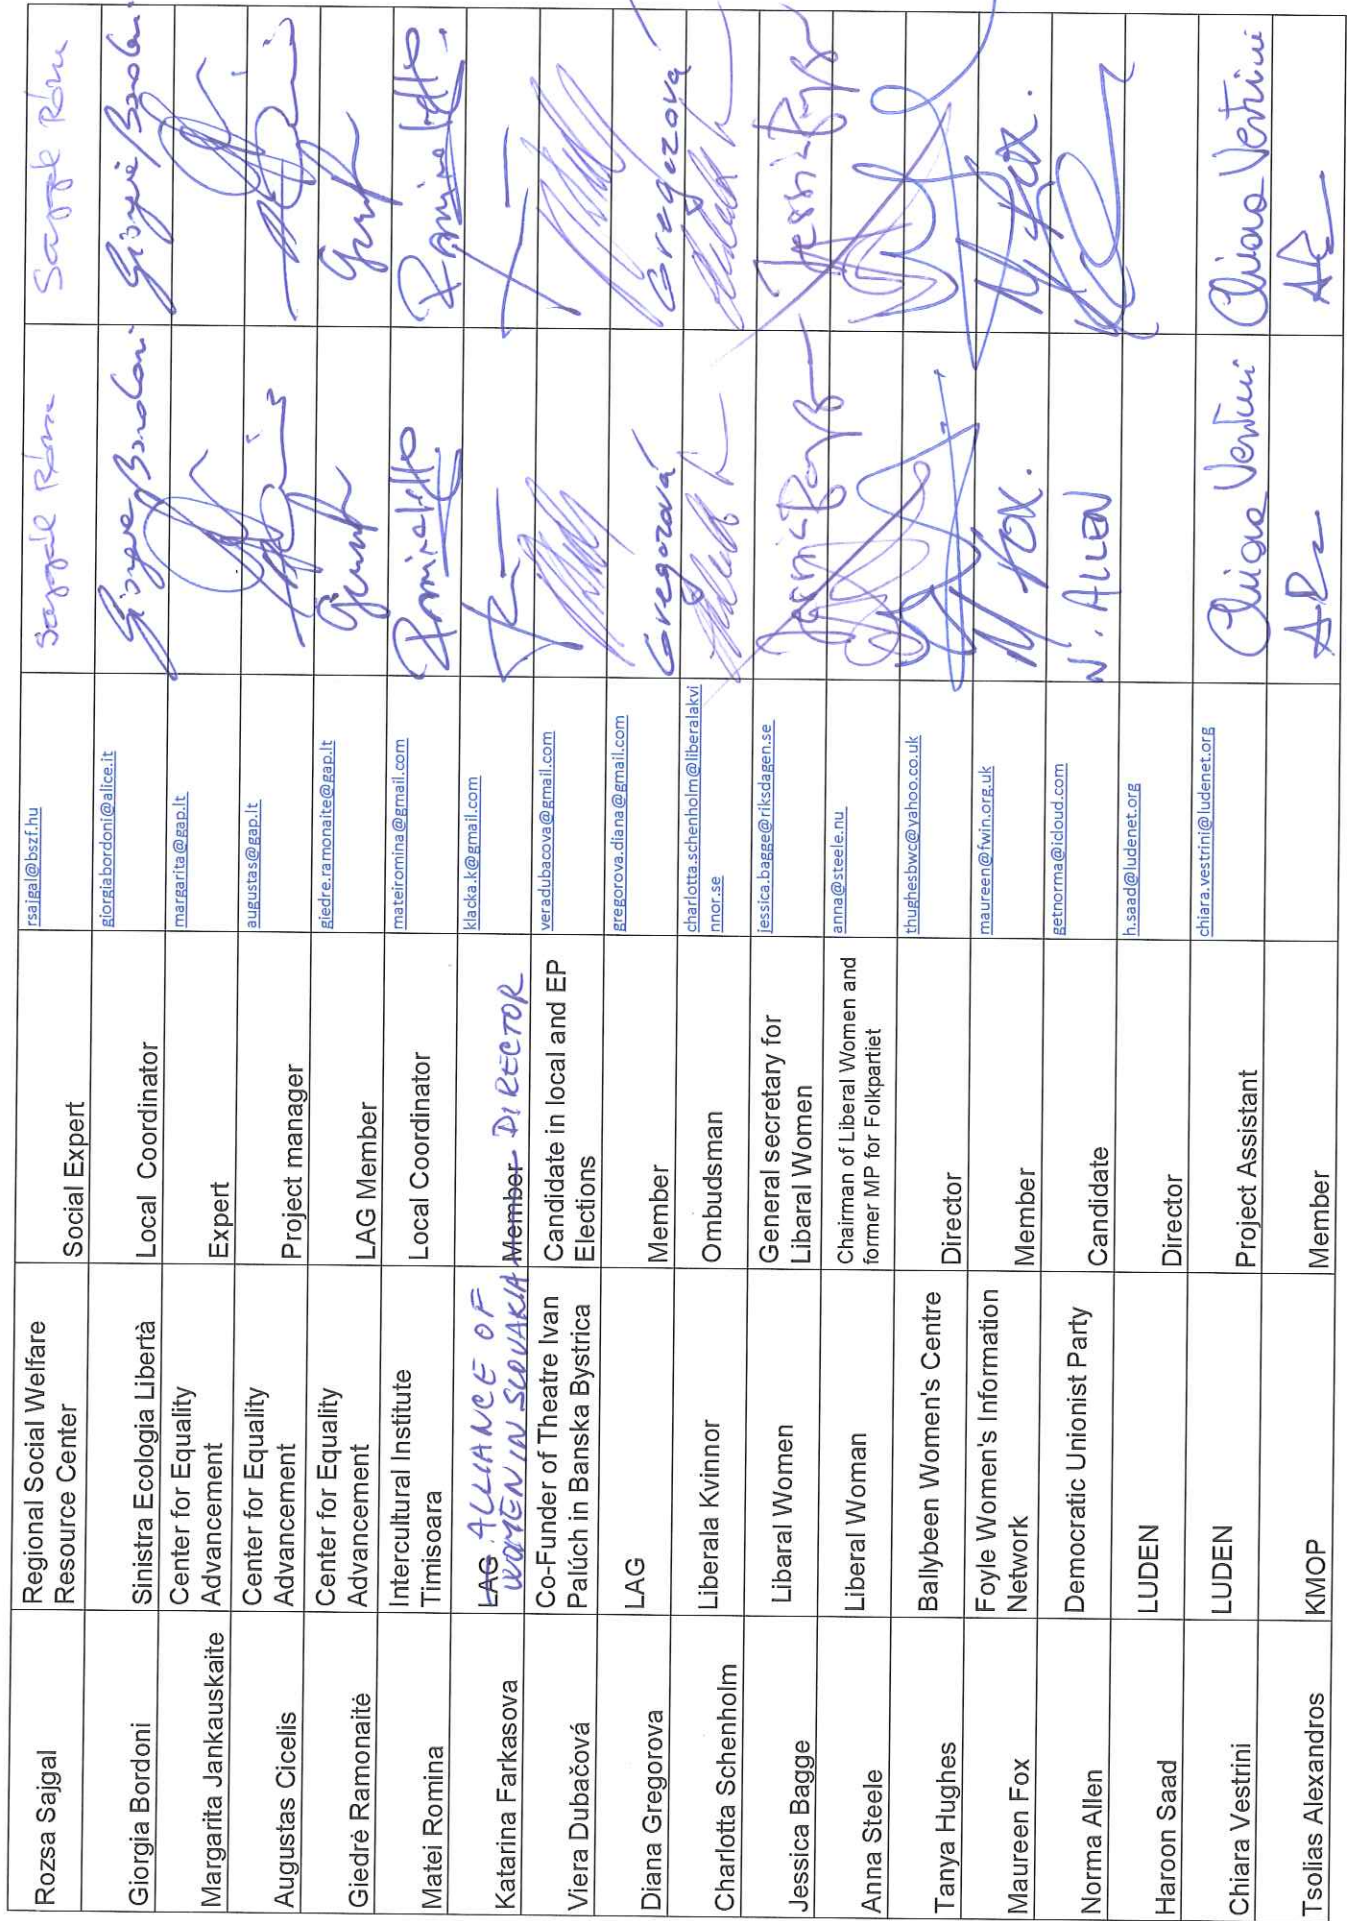 Rozsa Sajgal
Regional Social Welfare
Resource Center
Social Expert
rsajgal@bszf.hu
Giorgia Bordoni
Sinistra Ecologia Libertà
Local Coordinator
giorgiabordoni@alice.it
Margarita Jankauskaite
Center for Equality
Advancement
Expert
margarita@gap.lt
Augustas Cicelis
Center for Equality
Advancement
Project manager
augustas@gap.lt
Giedrė Ramonaitė
Center for Equality
Advancement
LAG Member
giedre.ramonaite@gap.lt
Matei Romina
Intercultural Institute
Timisoara
Local Coordinator
mateiromina@gmail.com
Katarina Farkasova
LAG ALLIANCE OF
WOMEN IN SLOVAKIA
Member DIRECTOR
klacka.k@gmail.com
Viera Dubačová
Co-Funder of Theatre Ivan
Palúch in Banska Bystrica
Candidate in local and EP
Elections
veradubacova@gmail.com
Diana Gregorova
LAG
Member
gregorova.diana@gmail.com
Gregorová
Gregorová
Charlotta Schenholm
Liberala Kvinnor
Ombudsman
charlotta.schenholm@liberalakvi
nnor.se
Jessica Bagge
Libaral Women
General secretary for
Libaral Women
jessica.bagge@riksdagen.se
Anna Steele
Liberal Woman
Chairman of Liberal Women and
former MP for Folkpartiet
anna@steele.nu
Tanya Hughes
Ballybeen Women's Centre
Director
thughesbwc@yahoo.co.uk
Maureen Fox
Foyle Women's Information
Network
Member
maureen@fwin.org.uk
M Fox.
M Fox.
Norma Allen
Democratic Unionist Party
Candidate
getnorma@icloud.com
N. ALLEN
Haroon Saad
LUDEN
Director
h.saad@ludenet.org
Chiara Vestrini
LUDEN
Project Assistant
chiara.vestrini@ludenet.org
Chiara Vestrini
Chiara Vestrini
Tsolias Alexandros
KMOP
Member